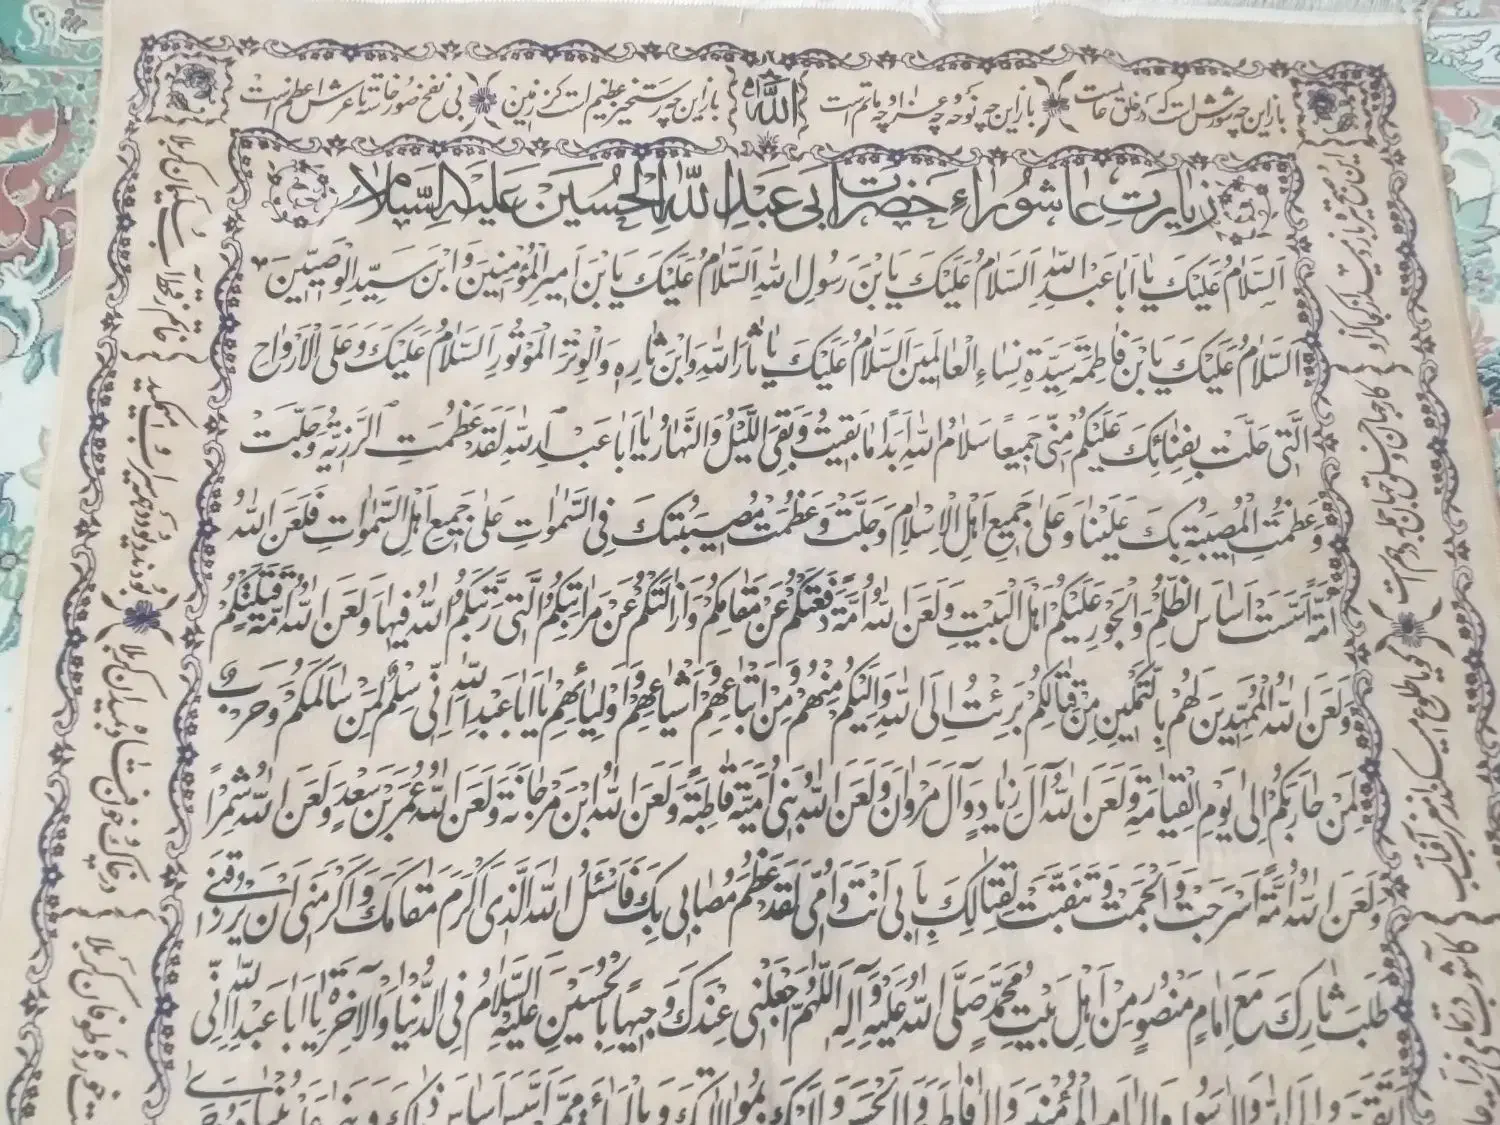 باز این چه شورش است که در خلق عالم است
باز این چه نوحه و چه عزا و چه ماتم است
الله
باز این چه رستخیز عظیم است کز زمین
بی نفخ صور خاسته تا عرش اعظم است
زیارت عاشوراء حضرت ابی عبد الله الحسین علیه السلام
اَلسَّلامُ عَلَیْکَ یا اَبا عَبْدِ اللهِ اَلسَّلامُ عَلَیْکَ یَا بْنَ رَسُولِ اللهِ اَلسَّلامُ عَلَیْکَ یَا بْنَ اَمیرِ الْمُؤْمِنینَ وَابْنَ سَیِّدِ الْوَصِیّینَ
اَلسَّلامُ عَلَیْکَ یَا بْنَ فاطِمَةَ سَیِّدَةِ نِساءِ الْعالَمینَ اَلسَّلامُ عَلَیْکَ یا ثارَ اللهِ وَابْنَ ثارِهِ وَالْوِتْرَ الْمَوْتُورَ اَلسَّلامُ عَلَیْکَ وَعَلَی الْاَرْواحِ
الَّتی حَلَّتْ بِفِنائِکَ عَلَیْکُمْ مِنّی جَمیعاً سَلامُ اللهِ اَبَداً ما بَقیتُ وَبَقِیَ اللَّیْلُ وَالنَّهارُ یا اَبا عَبْدِ اللهِ لَقَدْ عَظُمَتِ الرَّزِیَّةُ وَجَلَّتْ
وَعَظُمَتِ الْمُصیبَةُ بِکَ عَلَیْنا وَعَلی جَمیعِ اَهْلِ الْاِسْلامِ وَجَلَّتْ وَعَظُمَتْ مُصیبَتُکَ فِی السَّمٰواتِ عَلی جَمیعِ اَهْلِ السَّمٰواتِ فَلَعَنَ اللهُ
اُمَّةً اَسَّسَتْ اَساسَ الظُّلْمِ وَالْجَوْرِ عَلَیْکُمْ اَهْلَ الْبَیْتِ وَلَعَنَ اللهُ اُمَّةً دَفَعَتْکُمْ عَنْ مَقامِکُمْ وَاَزالَتْکُمْ عَنْ مَراتِبِکُمُ الَّتی رَتَّبَکُمُ اللهُ فیها وَلَعَنَ اللهُ اُمَّةً قَتَلَتْکُمْ
وَلَعَنَ اللهُ الْمُمَهِّدینَ لَهُمْ بِالتَّمْکینِ مِنْ قِتالِکُمْ بَرِئْتُ اِلَی اللهِ وَاِلَیْکُمْ مِنْهُمْ وَمِنْ اَتْباعِهِمْ وَاَشْیاعِهِمْ وَاَوْلِیائِهِمْ یا اَبا عَبْدِ اللهِ اِنّی سِلْمٌ لِمَنْ سالَمَکُمْ وَحَرْبٌ
لِمَنْ حارَبَکُمْ اِلی یَوْمِ الْقِیامَةِ وَلَعَنَ اللهُ آلَ زِیادٍ وَآلَ مَرْوانَ وَلَعَنَ اللهُ بَنی اُمَیَّةَ قاطِبَةً وَلَعَنَ اللهُ ابْنَ مَرْجانَةَ وَلَعَنَ اللهُ عُمَرَ بْنَ سَعْدٍ وَلَعَنَ اللهُ شِمْراً
وَلَعَنَ اللهُ اُمَّةً اَسْرَجَتْ وَاَلْجَمَتْ وَتَنَقَّبَتْ لِقِتالِکَ بِاَبی اَنْتَ وَاُمّی لَقَدْ عَظُمَ مُصابی بِکَ فَاَسْئَلُ اللهَ الَّذی اَکْرَمَ مَقامَکَ وَاَکْرَمَنی اَنْ یَرْزُقَنی
طَلَبَ ثارِکَ مَعَ اِمامٍ مَنْصُورٍ مِنْ اَهْلِ بَیْتِ مُحَمَّدٍ صَلَّی اللهُ عَلَیْهِ وَآلِهِ اَللّهُمَّ اجْعَلْنی عِنْدَکَ وَجیهاً بِالْحُسَیْنِ عَلَیْهِ السَّلامُ فِی الدُّنْیا وَالْآخِرَةِ یا اَبا عَبْدِ اللهِ اِنّی
این صبح تیره باز دمید از کجا کزو
کار جهان و خلق جهان جمله درهم است
گویا طلوع میکند از مغرب آفتاب
کاشوب در تمامی ذرات
خاتم ز قحط آب سلیمان کربلا
بودند دیو و دد همه سیراب و میمکید
در خاک و خون فتاده به میدان کربلا
خورده طوفان کربلا